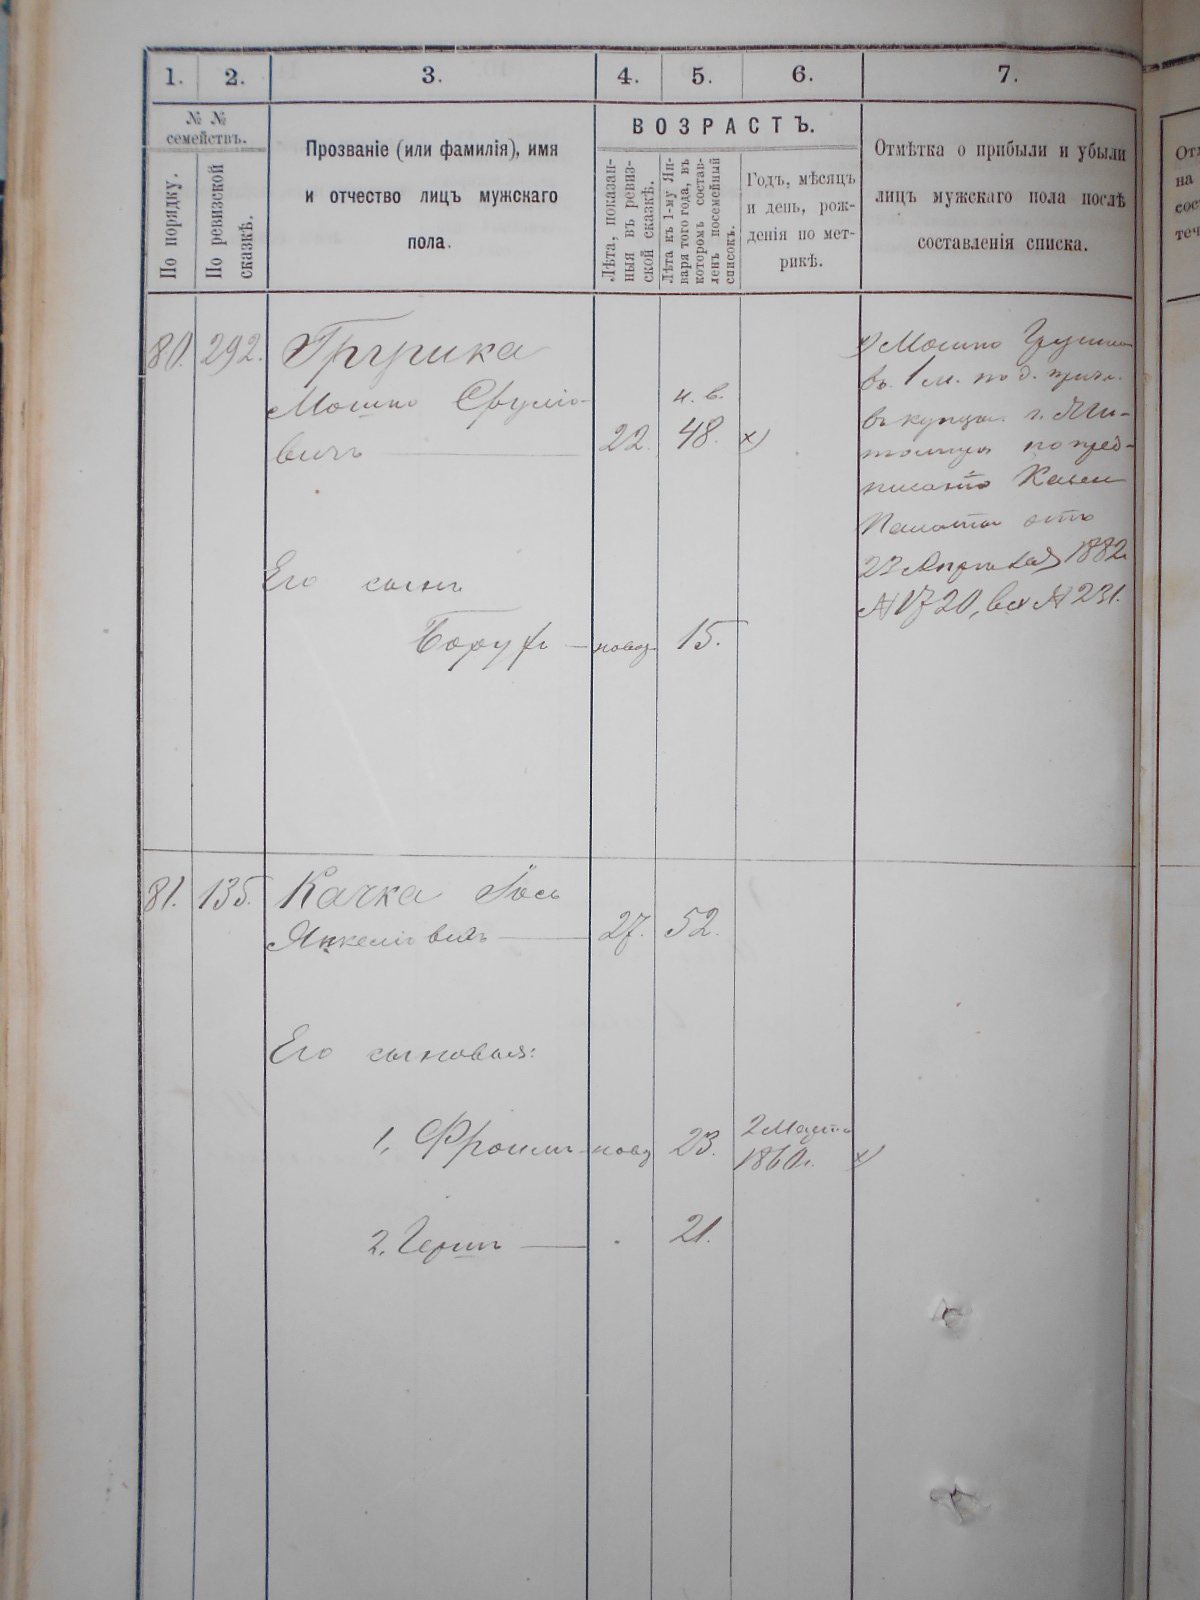 1. 2. 3. 4. 5. 6. 7.
№ №
семействъ.
По порядку.
По ревизской
сказкѣ.
Прозваніе (или фамилія), имя
и отчество лицъ мужскаго
пола.
ВОЗРАСТЪ.
Лѣта, показан-
ныя въ ревиз-
ской сказкѣ.
Лѣта къ 1-му Ян-
варя того года, въ
которомъ состав-
ленъ посемейный
списокъ.
Годъ, мѣсяцъ
и день, рож-
денія по мет-
рикѣ.
Отмѣтка о прибыли и убыли
лицъ мужскаго пола послѣ
составленія списка.
80. 292.
Мошко Сруліо-
вичъ 22. 48. х)
н. в.
Его сынъ
Борухъ — новор. 15.
х) Мошко
въ 1 м.
въ купцы г. Жи-
томира по пред-
писанію Казен
Палаты отъ
22 Апрѣля 1882
№ 1720, вх № 231.
81. 135. Качка Іось
Янкеліовичъ — 27. 52.
Его сыновья:
1, Фроимъ — новор 23. 2 Марта
1860г. х)
2. — . 21.